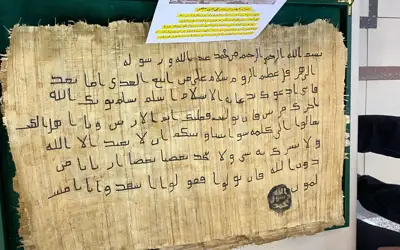 بسم الله الرحمن الرحيم من محمد عبد الله و رسوله
الى هرقل عظيم الروم سلام على من اتبع الهدى اما بعد
فانى ادعوك بدعاية الاسلام اسلم تسلم يوتك الله
اجرك مرتين فان توليت فعليك اثم الاريسين و يا اهل الكتب
تعالوا الى كلمة سوا بيننا و بينكم ان لا نعبد الا الله
و لا نشرك به شى و لا يتخذ بعضنا بعضا اربابا من
دون الله فان تولوا فقولوا اشهدوا بانا مس
لمون
الله
رسول
محمد